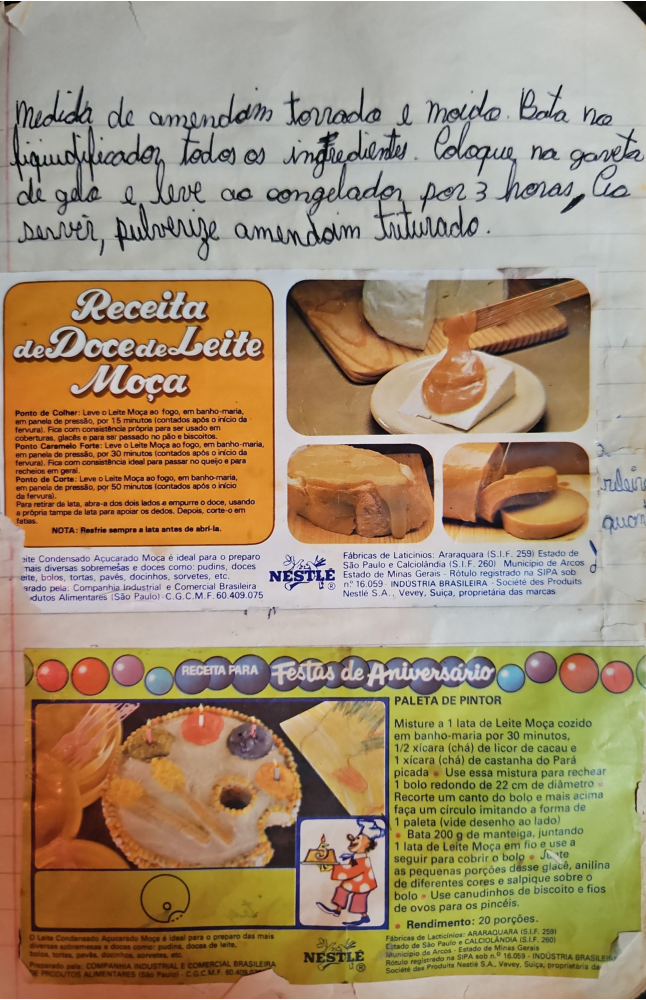 medida de amendoim torrado e moido. Bata no
liquidificador todos os ingredientes. Coloque na gaveta
de gelo e leve ao congelador por 3 horas, Ao
servir, pulverize amendoim triturado.
Receita
de Doce de Leite
Moça
Ponto de Colher: Leve o Leite Moça ao fogo, em banho-maria,
em panela de pressão, por 15 minutos (contados após o início da
fervura). Fica com consistência própria para ser usado em
coberturas, glacês e para ser passado no pão e biscoitos.
Ponto Caramelo Forte: Leve o Leite Moça ao fogo, em banho-maria,
em panela de pressão, por 30 minutos (contados após o início da
fervura). Fica com consistência ideal para passar no queijo e para
recheios em geral.
Ponto de Corte: Leve o Leite Moça ao fogo, em banho-maria,
em panela de pressão, por 50 minutos (contados após o início
da fervura).
Para retirar da lata, abra-a dos dois lados e empurre o doce, usando
a própria tampa de lata para apoiar os dedos. Depois, corte-o em
fatias.
NOTA: Resfrie sempre a lata antes de abri-la.
eite Condensado Açucarado Moça é ideal para o preparo
mais diversas sobremesas e doces como: pudins, doces
eite, bolos, tortas, pavês, docinhos, sorvetes, etc.
arado pela: Companhia Industrial e Comercial Brasileira
dutos Alimentares (São Paulo) - C.G.C.M.F. 60.409.075
NESTLÉ ®
Fábricas de Laticinios: Araraquara (S.I.F. 259) Estado de
São Paulo e Calciolândia (S.I.F. 260) Municipio de Arcos
Estado de Minas Gerais - Rótulo registrado na SIPA sob
n.º 16.059 - INDÚSTRIA BRASILEIRA - Société des Produits
Nestlé S.A., Vevey, Suiça, proprietária das marcas
RECEITA PARA Festas de Aniversário
PALETA DE PINTOR
Misture a 1 lata de Leite Moça cozido
em banho-maria por 30 minutos,
1/2 xícara (chá) de licor de cacau e
1 xícara (chá) de castanha do Pará
picada • Use essa mistura para rechear
1 bolo redondo de 22 cm de diâmetro •
Recorte um canto do bolo e mais acima
faça um círculo imitando a forma de
1 paleta (vide desenho ao lado)
• Bata 200 g de manteiga, juntando
1 lata de Leite Moça em fio e use a
seguir para cobrir o bolo • Junte
as pequenas porções desse glacê, anilina
de diferentes cores e salpique sobre o
bolo • Use canudinhos de biscoito e fios
de ovos para os pincéis.
• Rendimento: 20 porções.
O Leite Condensado Açucarado Moça é ideal para o preparo das mais
diversas sobremesas e doces como: pudins, doces de leite,
bolos, tortas, pavês, docinhos, sorvetes, etc.
Preparado pela: COMPANHIA INDUSTRIAL E COMERCIAL BRASILEIRA
DE PRODUTOS ALIMENTARES (São Paulo) - C.G.C.M.F. 60.409
NESTLÉ
Fábricas de Lacticinios: ARARAQUARA (S.I.F. 259)
Estado de São Paulo e CALCIOLÂNDIA (S.I.F. 260)
Municipio de Arcos - Estado de Minas Gerais
Rótulo registrado na SIPA sob n.º 16.059 - INDÚSTRIA BRASILEIRA
Société des Produits Nestlé S.A., Vevey, Suiça, proprietária da